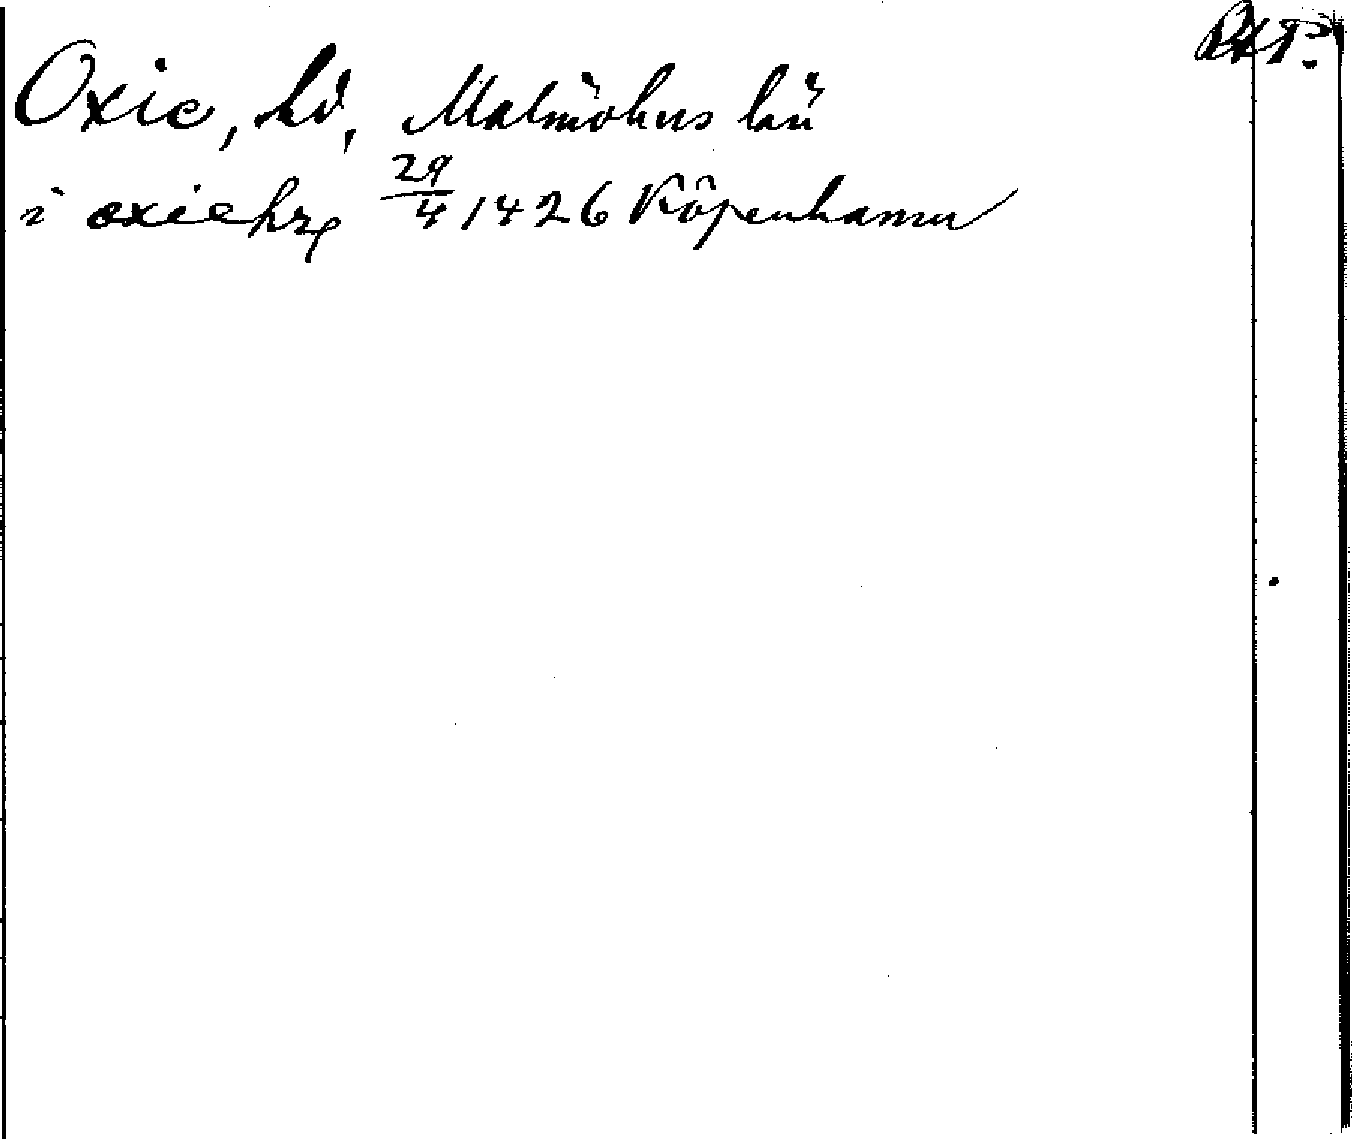 Oxie, hd, Malmöhus län
i oxiehr 29/4 1426 Köpenhamn